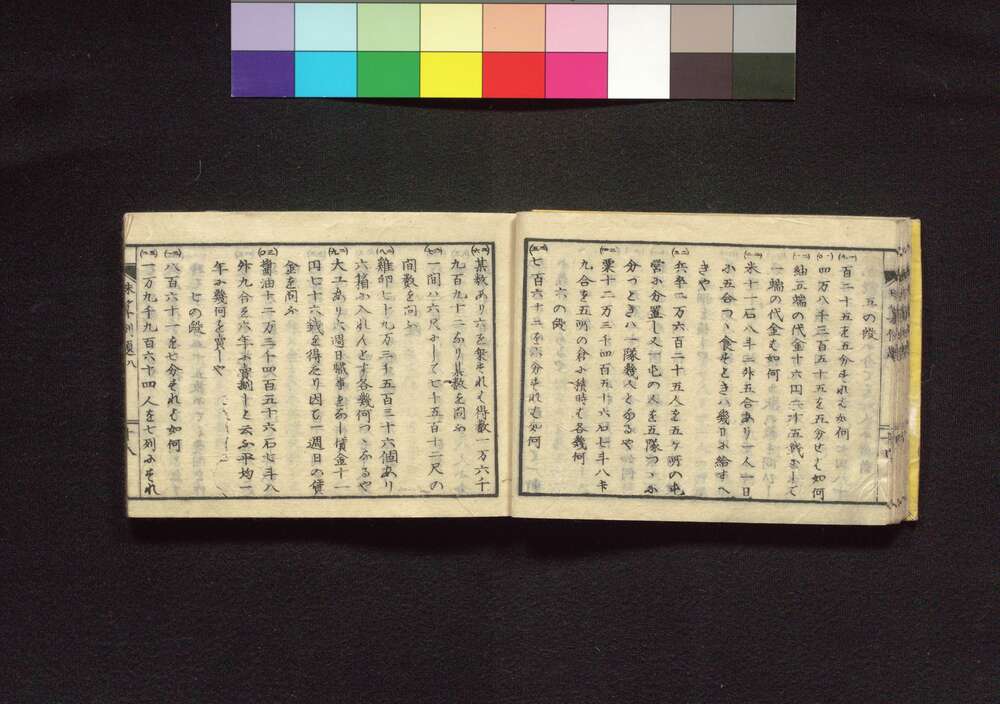 五の段
百二十五を五分すれば如何
四万八千三百五十五を五分せば如何
紬五端の代金十六円二十五銭にして
一端の代金は如何
米十一石八斗二升五合あり一人一日
に五合つゝ食するときハ幾日に給すへ
きや
兵卒二万六百二十五人を五ヶ所の屯
営に分置し又一屯の人を五隊つゝに
分つときハ一隊幾人となるや
粟十二万三千四百五十六石七斗八升
九合を五所の倉に積時は各幾何
六の段
七百六十二を六分すれば如何
某数あり六を乗すれば得数一万六千
九百九十二なり某数を問ふ
一間ハ六尺にして七十五百十二尺の
間数を問ふ
鶏卵七十九万二千五百三十六個あり
六箱に入れんとす各幾何つゝなるや
大工あり六週日職事をなし賃金十一
円七十六銭を得たり因て一週日の賃
金を問ふ
醤油十二万三千四百五十六石七斗八
升九合を六年に賣捌しと云ふ平均一
年に幾何を賣しや
七の段
八百六十一を七分すれば如何
一万九千九百六十四人を七列にすれ
珠算例題八
十八